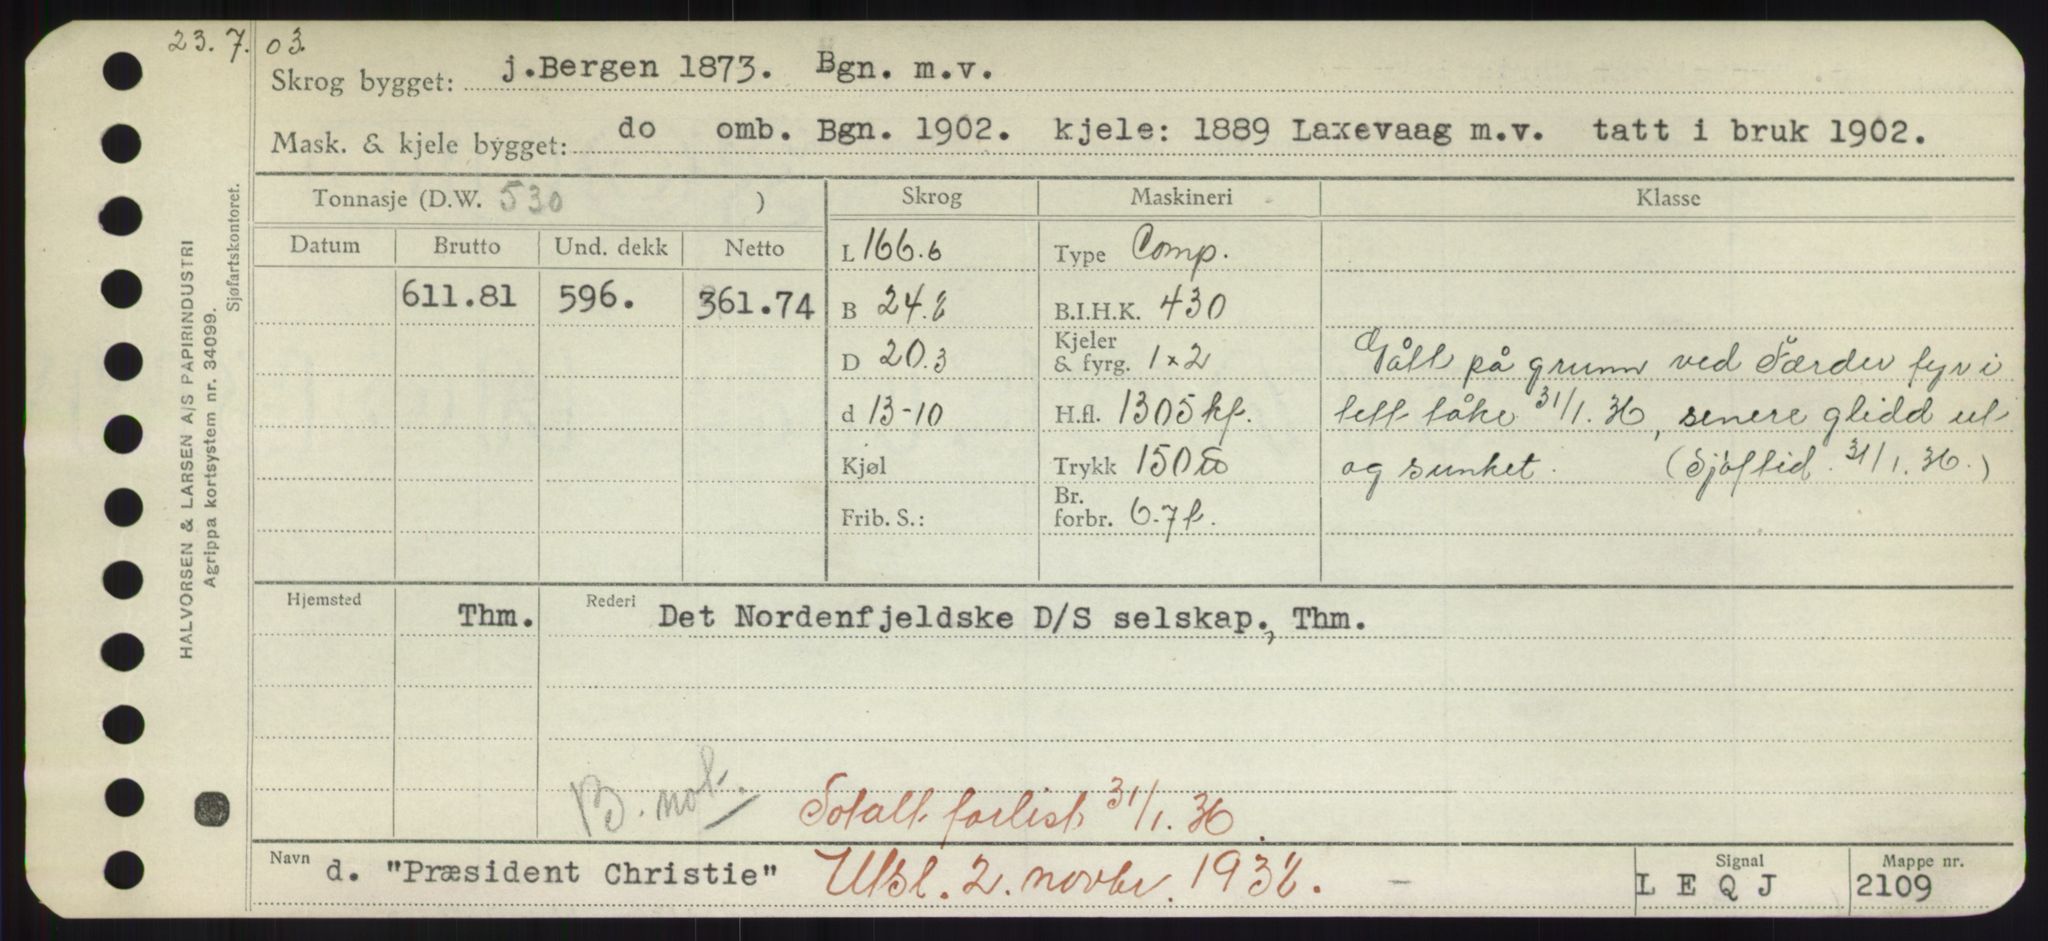 23. 7. 03.
Skrog bygget: j.Bergen 1873. Bgn. m.v.
Mask. & kjele bygget: do omb. Bgn. 1902. kjele: 1889 Laxevaag m.v. tatt i bruk 1902.
Tonnasje (D.W. 530 ) Skrog Maskineri Klasse
Datum Brutto Und. dekk Netto
L 166.6 Type Comp.
611.81 596. 361.74
B 24.8 B.I.H.K. 430
D 20.3 Kjeler & fyrg. 1 x 2
Gått på grunn ved Færder fyr i
d 13-10 H.fl. 1305 kf.
tett tåke 31/1. 36, senere glidd ut
Kjøl Trykk 150
og sunket. (Sjøftid. 31/1. 36.)
Frib. S.: Br. forbr. 6-7 t.
Hjemsted Thm. Rederi Det Nordenfjeldske D/S selskap., Thm.
B. not.
Totalt forlist 31/1. 36.
Navn d. "Præsident Christie" Utsl. 2. novbr. 1938. - Signal L E Q J Mappe nr. 2109
HALVORSEN & LARSEN A/S PAPIRINDUSTRI
Agrippa kortsystem nr. 34099.
Sjøfartskontoret.